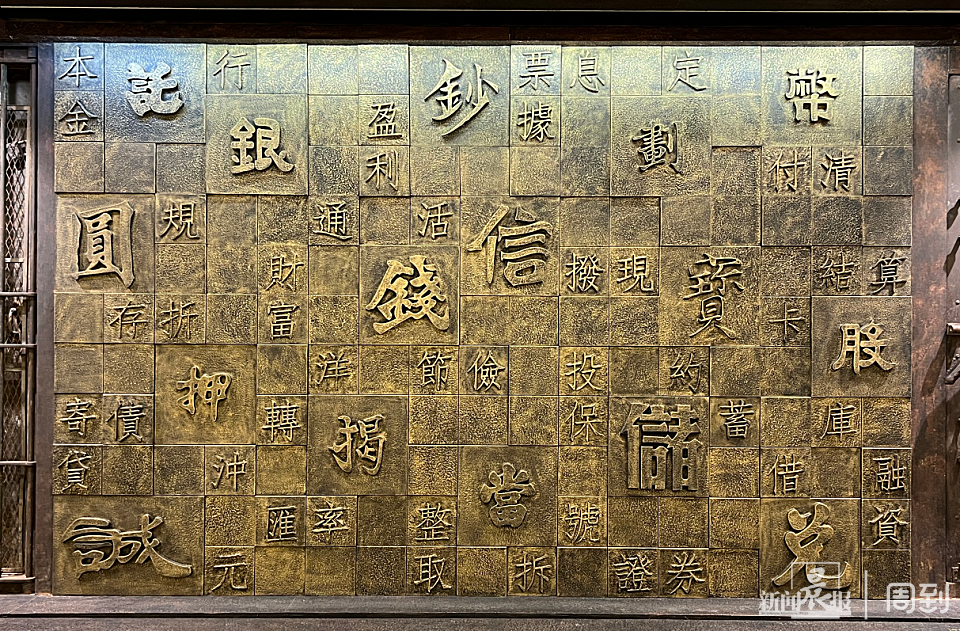 本 託 行 鈔 票 息 定 幣
金 銀 盈 據 劃
利 付 清
圓 規 通 活 信
財 錢 撥 現 寶 結 算
存 折 富 卡 股
押 洋 節 儉 投 約
寄 債 轉 揭 保 儲 蓄 庫
貸 沖 當 借 融
誠 匯 率 整 號 兌 資
元 取 拆 證 券
新闻晨报 周到